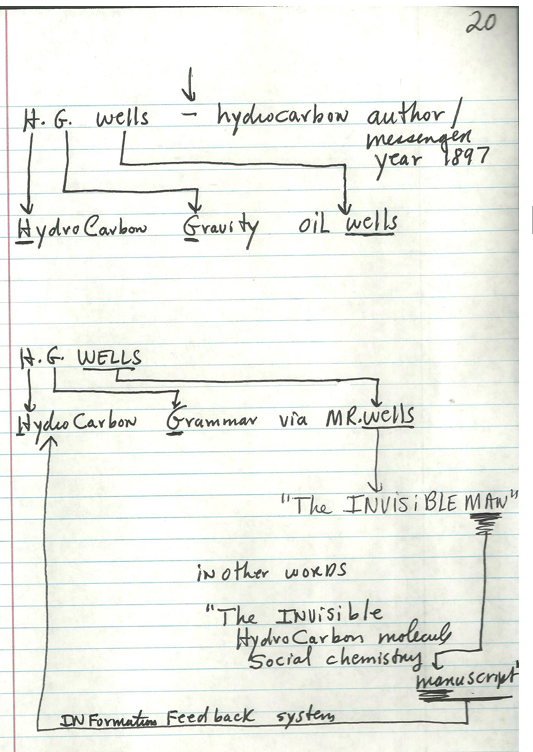 20
H. G. wells – hydrocarbon author/
messenger
year 1897
HydroCarbon Gravity oiL wells
H. G. WELLS
HydroCarbon Grammar via MR. wells
"The INVISiBLE MAN"
iN other worDs
"The INVisible
HydroCarbon molecule
Social chemistry
manuscript"
INFormation Feedback system